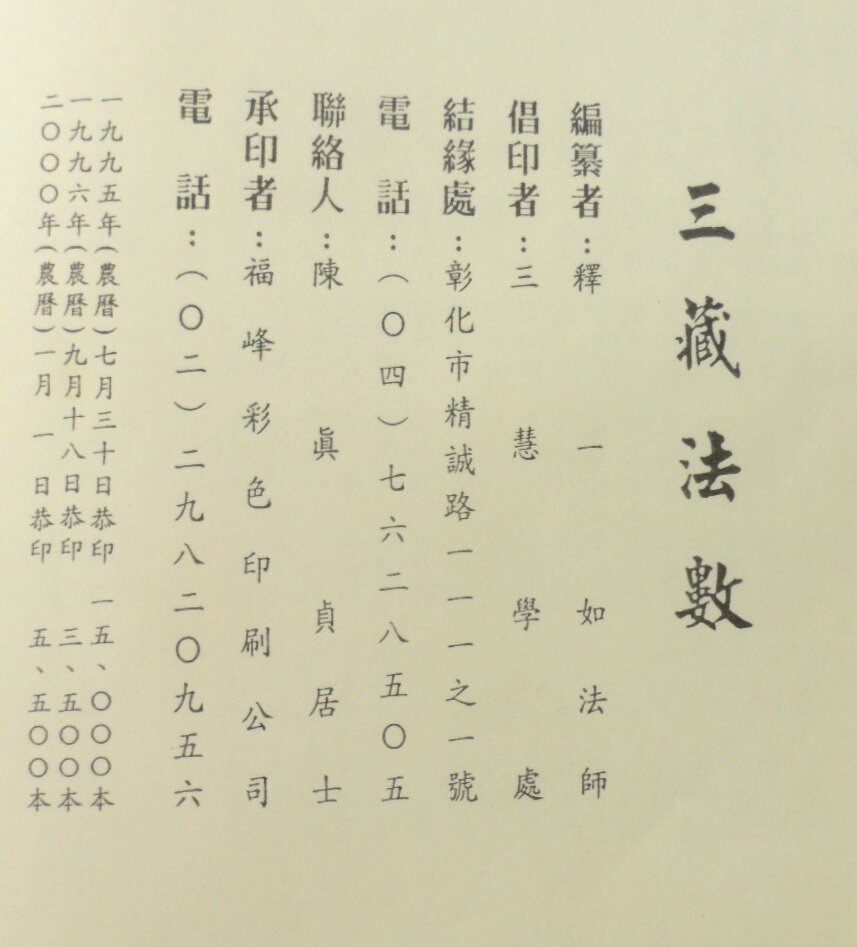 三藏法數
編纂者：釋一如法師
倡印者：三慧學處
結緣處：彰化市精誠路一一一之一號
電話：（〇四）七六二八五〇五
聯絡人：陳眞貞居士
承印者：福峰彩色印刷公司
電話：（〇二）二九八二〇九五六
一九九五年（農曆）七月三十日恭印 一五、〇〇〇本
一九九六年（農曆）九月十八日恭印 三、五〇〇本
二〇〇〇年（農曆）一月一日恭印 五、五〇〇本